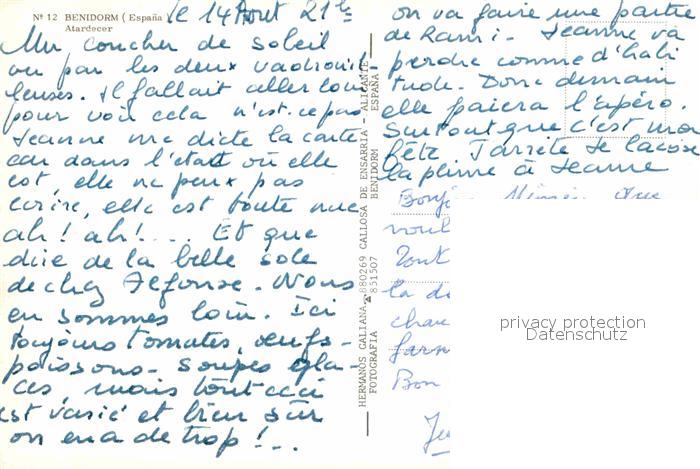 Nº 12 BENIDORM (España)
Atardecer
le 14 Août 21h
Un coucher de soleil
vu par les deux vadrouil-
leuses. Il fallait aller loin
pour voir cela n'est-ce pas
Jeanne me dicte la carte
car dans l'état où elle
est, elle ne peux pas
écrire, elle est toute nue
ah! ah!... Et que
dire de la belle sole
de chez Alfonse. Nous
en sommes loin. Ici
toujours tomates, oeufs-
poissons. Soupes gla-
ces, mais tout ceci
est varié et bien sûr
on en a de trop!...
HERMANOS GALIANA 880269 CALLOSA DE ENSARRIA ALICANTE
FOTOGRAFIA 851507 BENIDORM ESPAÑA
on va faire une partie
de Rami. Jeanne va
perdre comme d'habi
tude. Donc demain
elle paiera l'apéro.
Surtout que c'est ma
fête. J'arrête je laisse
la plume à Jeanne
Bonj
voul
Tout
la di
chau
farn
Bon
Je
privacy protection
Datenschutz